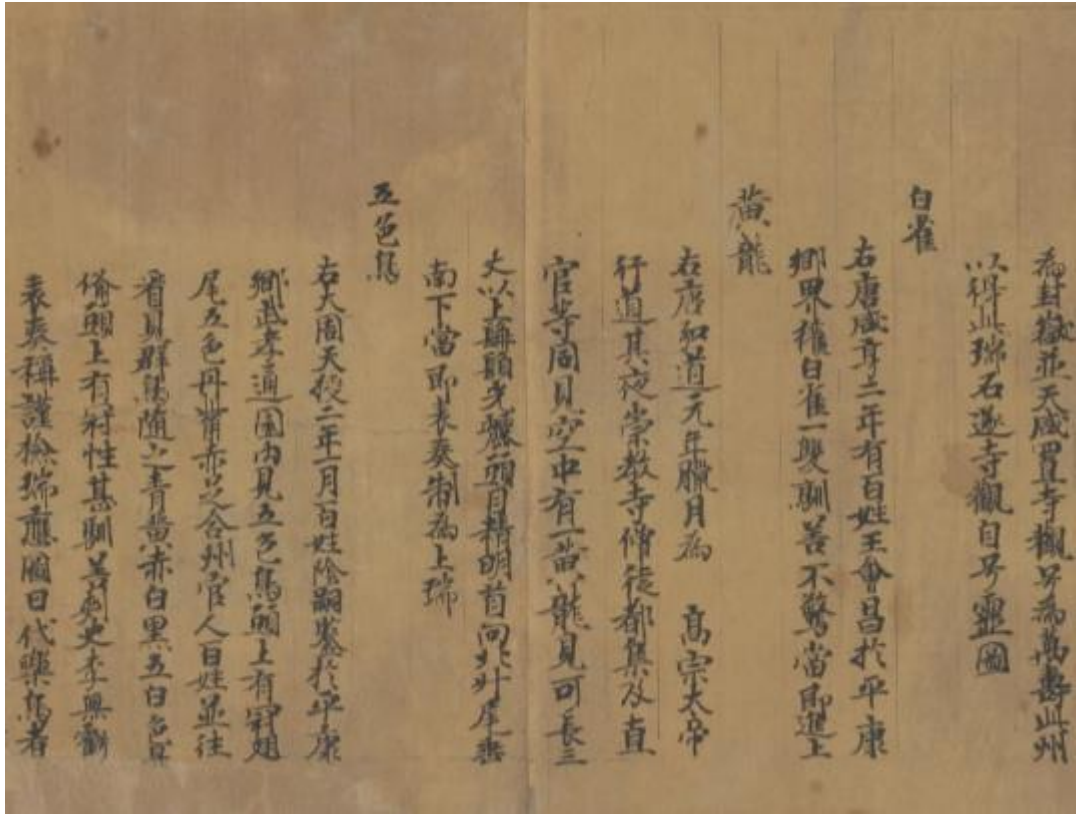 為封嶽並天咸置寺觀号為萬壽此州
以得此瑞石遂寺觀自号靈圖
白雀
右唐咸亨二年有百姓王會昌於平康
鄉界獲白雀一雙馴善不驚當即進上
黃龍
右唐弘道元年臘月為 高宗大帝
行道其夜崇教寺僧徒都集及直
官等同見空中有一黃龍見可長三
丈以上髯鬚光麗頭目精明首向北升尾垂
南下當即表奏制為上瑞
五色鳥
右大周天授二年一月百姓陰嗣鑒於平康
鄉武孝通園內見五色鳥頭上有冠翅
尾五色丹嘴赤足合州官人百姓並往
看見群鳥隨之青黃赤白黑五白色具
俻頭上有冠性甚馴善刾史李無虧
表奏稱謹檢瑞應圖曰代樂鳥者